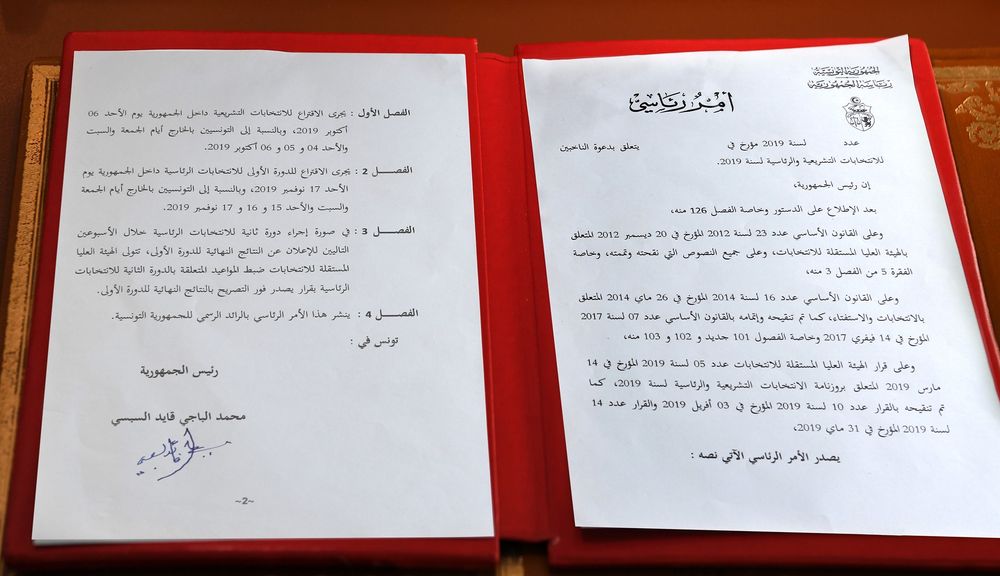 الجمهورية التونسية
رئاسة الجمهورية
أمر رئاسي
عدد لسنة 2019 مؤرخ في يتعلق بدعوة الناخبين
للانتخابات التشريعية والرئاسية لسنة 2019.
إن رئيس الجمهورية،
بعد الإطلاع على الدستور وخاصة الفصل 126 منه،
وعلى القانون الأساسي عدد 23 لسنة 2012 المؤرخ في 20 ديسمبر 2012 المتعلق
بالهيئة العليا المستقلة للانتخابات، وعلى جميع النصوص التي نقحته وتممته، وخاصة
الفقرة 5 من الفصل 3 منه،
وعلى القانون الأساسي عدد 16 لسنة 2014 المؤرخ في 26 ماي 2014 المتعلق
بالانتخابات والاستفتاء، كما تم تنقيحه وإتمامه بالقانون الأساسي عدد 07 لسنة 2017
المؤرخ في 14 فيفري 2017 وخاصة الفصول 101 جديد و 102 و 103 منه،
وعلى قرار الهيئة العليا المستقلة للانتخابات عدد 05 لسنة 2019 المؤرخ في 14
مارس 2019 المتعلق بروزنامة الانتخابات التشريعية والرئاسية لسنة 2019، كما
تم تنقيحه بالقرار عدد 10 لسنة 2019 المؤرخ في 03 أفريل 2019 والقرار عدد 14
لسنة 2019 المؤرخ في 31 ماي 2019،
يصدر الأمر الرئاسي الآتي نصه :
الفصل الأول : يجرى الاقتراع للانتخابات التشريعية داخل الجمهورية يوم الأحد 06
أكتوبر 2019، وبالنسبة إلى التونسيين بالخارج أيام الجمعة والسبت
والأحد 04 و 05 و 06 أكتوبر 2019.
الفصل 2 : يجرى الاقتراع للدورة الأولى للانتخابات الرئاسية داخل الجمهورية يوم
الأحد 17 نوفمبر 2019، وبالنسبة إلى التونسيين بالخارج أيام الجمعة
والسبت والأحد 15 و 16 و 17 نوفمبر 2019.
الفصل 3 : في صورة إجراء دورة ثانية للانتخابات الرئاسية خلال الأسبوعين
التاليين للإعلان عن النتائج النهائية للدورة الأولى، تتولى الهيئة العليا
المستقلة للانتخابات ضبط المواعيد المتعلقة بالدورة الثانية للانتخابات
الرئاسية بقرار يصدر فور التصريح بالنتائج النهائية للدورة الأولى.
الفصل 4 : ينشر هذا الأمر الرئاسي بالرائد الرسمي للجمهورية التونسية.
تونس في :
رئيس الجمهورية
محمد الباجي قايد السبسي
~2~